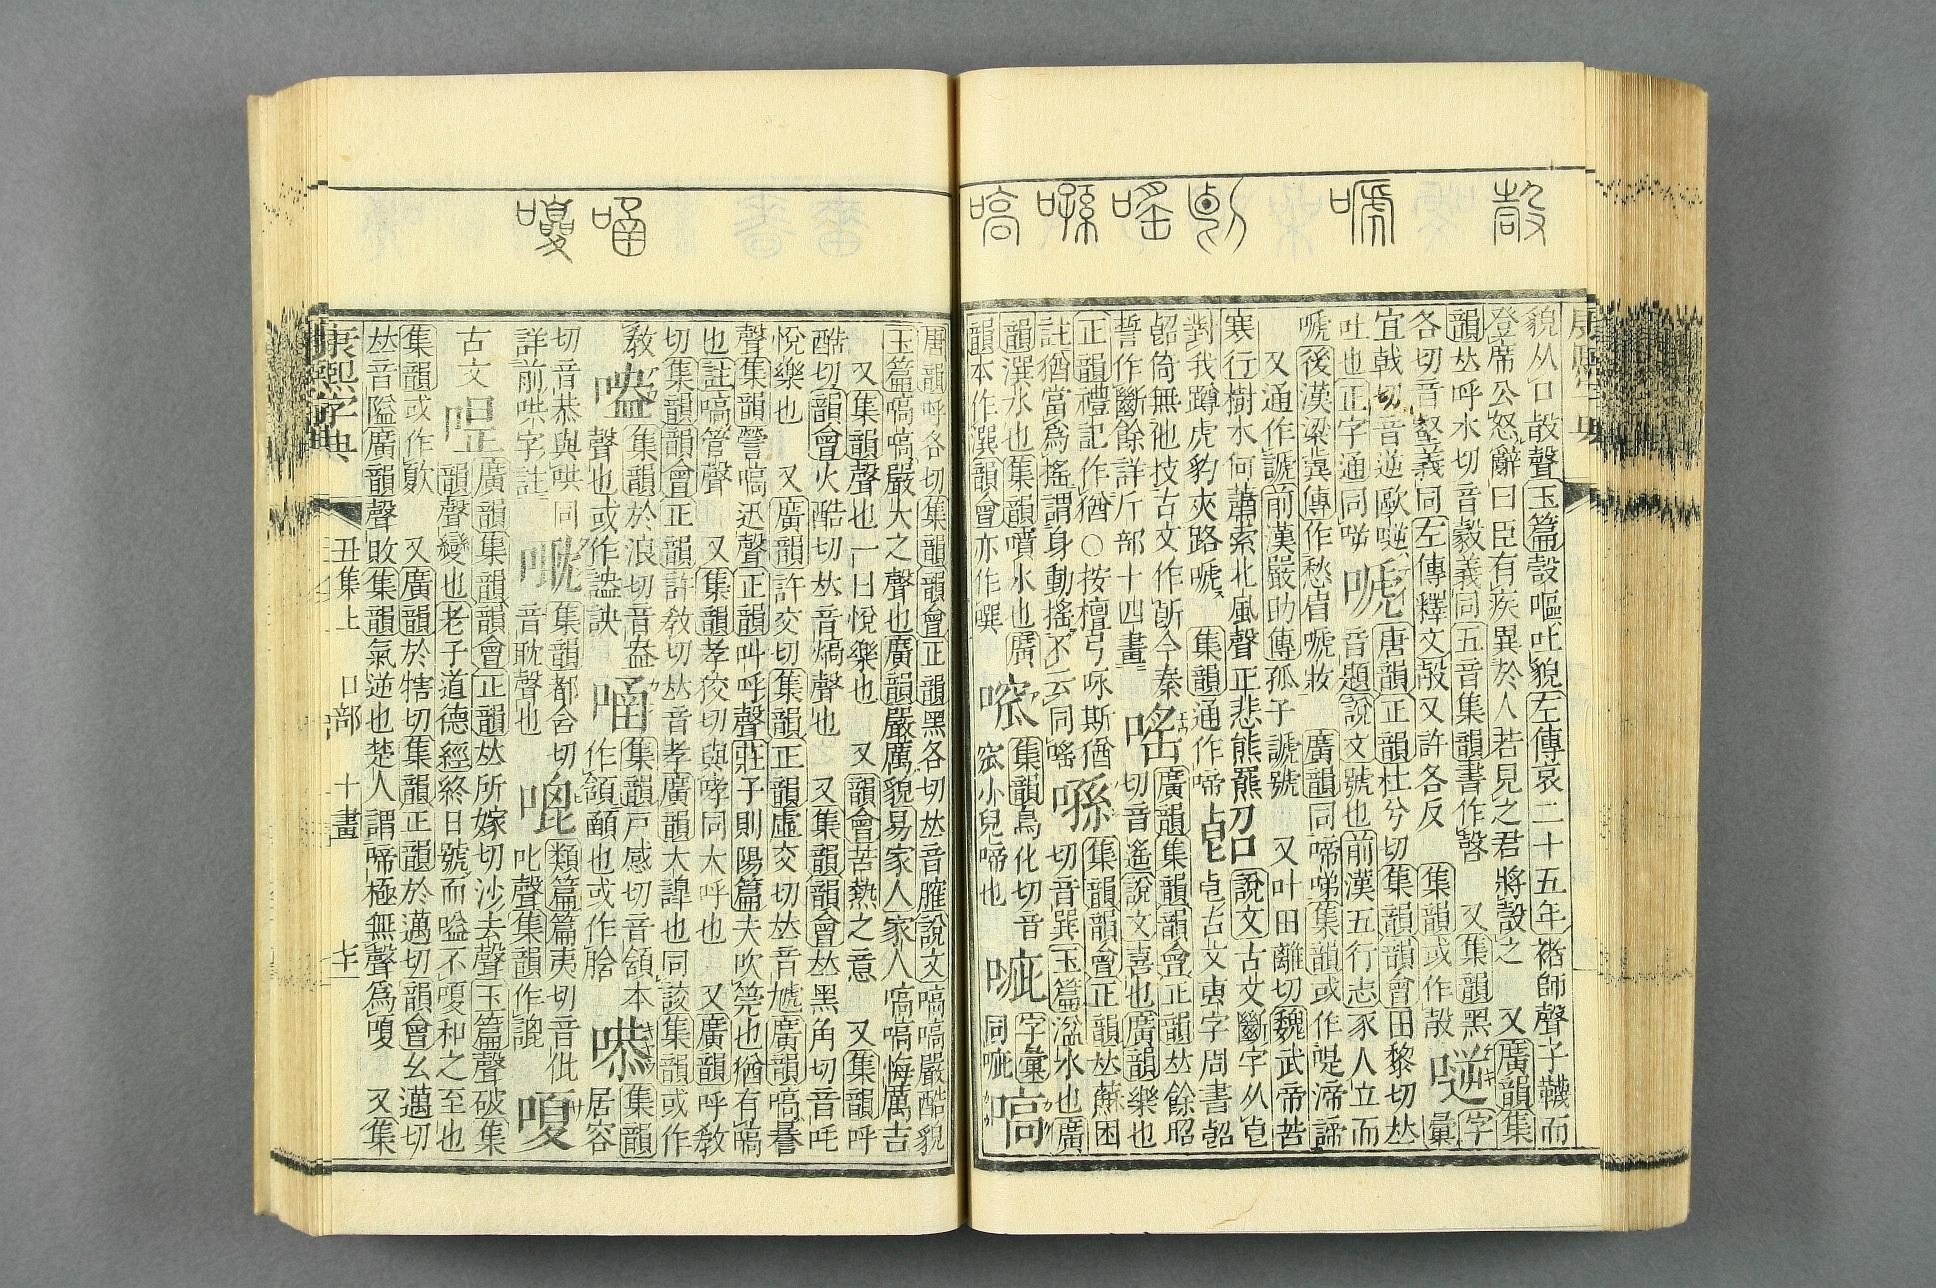 貌从口㱿聲玉篇嗀嘔吐貌左傳哀二十五年褚師聲子韤而
登席公怒辭曰臣有疾異於人若見之君將嗀之 又廣韻集
韻𠀤呼木切音 義同五音集韻書作 又集韻黑
各切音壑義同左傳釋文㱿又許各反 集韻或作㱿 字彙
宜戟切音逆歐 嗁 唐韻正韻杜兮切集韻韻會田黎切𠀤
吐也正字通同 音題說文號也前漢五行志豕人立而
嗁後漢梁冀傳作愁眉嗁妝 廣韻同啼 集韻或作 渧諦
又通作謕前漢嚴助傳孤子謕號 又叶田離切魏武帝苦
寒行樹木何蕭索北風聲正悲熊羆 說文古文斷字从𠧢
對我蹲虎豹夾路嗁 集韻通作啼 𠧢古文叀字周書
猗無他技古文作 今秦 嗂 廣韻集韻韻會正韻𠀤餘昭
誓作斷餘詳斤部十四畫 切音遙說文喜也廣韻樂也
正韻禮記作猶○按檀弓咏斯猶 集韻韻會正韻𠀤蘇困
註猶當爲搖謂身動搖不云同嗂 切音巽玉篇湓水也廣
韻潠水也集韻噴水也廣 集韻烏化切音 字彙 嗃
韻本作潠韻會亦作噀 窊小兒啼也 同
唐韻呼各切集韻韻會正韻黑各切𠀤音臛說文嗃嗃嚴酷貌
玉篇嗃嗃嚴大之聲也廣韻嚴厲貌易家人家人嗃嗃悔厲吉
又集韻聲也一曰悅樂也 又韻會苦熱之意 又集韻呼
酷切韻會火酷切𠀤音熇聲也 又集韻韻會𠀤黑角切音吒
悅樂也 又廣韻許交切集韻正韻虛交切𠀤音虓廣韻嗃謈
聲集韻謍嗃迅聲正韻叫呼聲莊子則陽篇夫吹筦也猶有嗃
也註嗃管聲 又集韻孝狡切與哮同大呼也 又廣韻呼敎
切集韻韻會正韻許敎切𠀤音孝廣韻大嘷也同詨集韻或作
敎 集韻於浪切音盎 集韻戸感切音頷本 集韻
聲也或作 詇 作頷顄也或作 居容
切音恭與哄同 集韻都合切 類篇篇夷切音仳 嗄
詳前哄字註 音耽聲也 叱聲集韻作諀
古文 廣韻集韻韻會正韻𠀤所嫁切沙去聲玉篇聲破集
韻聲變也老子道德經終日號而嗌不嗄和之至也
集韻或作 又廣韻於犗切集韻正韻於邁切韻會幺邁切
𠀤音隘廣韻聲敗集韻氣逆也楚人謂啼極無聲爲嗄 又集
康熙字典 丑集上 口部 十畫